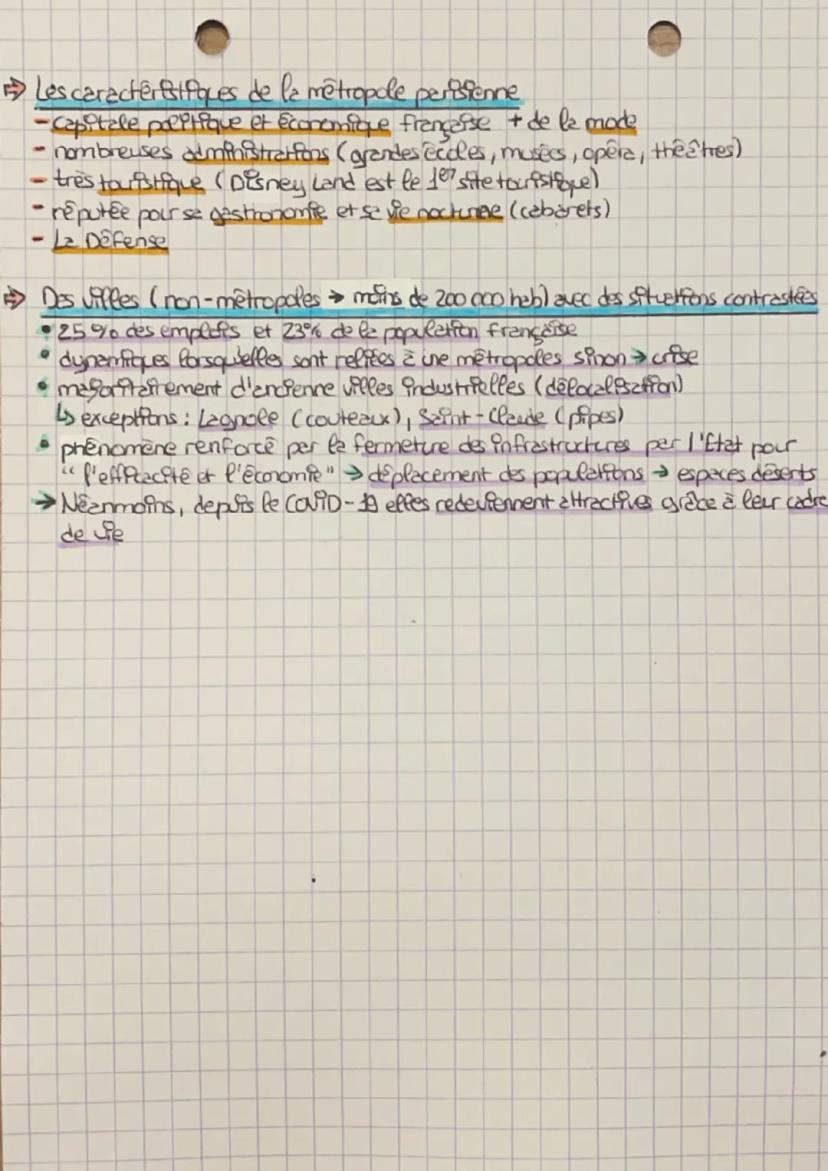 ⇒ Les caractéristiques de la métropole parisienne
- capitale politique et économique française + de la mode
- nombreuses administrations (grandes écoles, musées, opéra, théâtres)
- très touristique (Disney Land est le 1er site touristique)
- réputée pour sa gastronomie et sa vie nocturne (cabarets)
- La Défense
⇒ Des villes (non-métropoles → moins de 200 000 hab) avec des situations contrastées
• 25% des emplois et 23% de la population française
• dynamiques lorsqu'elles sont reliées à une métropoles sinon → crise
• majoritairement d'ancienne villes industrielles (délocalisation)
↳ exceptions : Lagnole (couteaux), Saint-Claude (pipes)
• phénomène renforcé par la fermeture des infrastructures par l'Etat pour
"l'efficacité et l'économie" → déplacement des populations → espaces déserts
→ Néanmoins, depuis le COVID-19 elles redeviennent attractives grâce à leur cadre
de vie